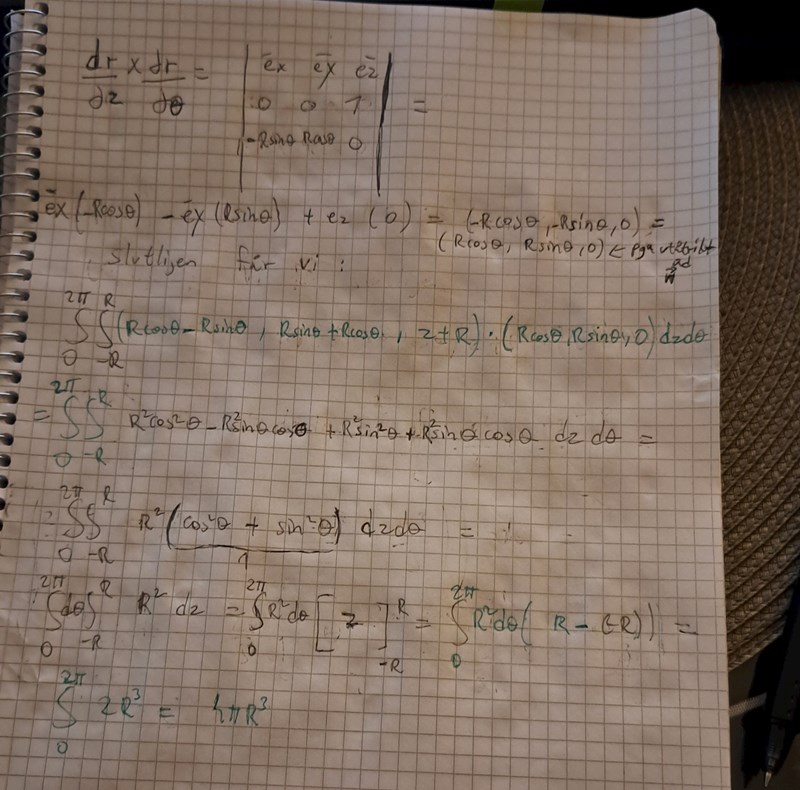 dr/dz × dr/dθ = | ēx ēy ēz |
| 0 0 1 | =
| -Rsinθ Rcosθ 0 |
ēx(-Rcosθ) - ēy(Rsinθ) + ez(0) = (-Rcosθ, -Rsinθ, 0) =
(Rcosθ, Rsinθ, 0) ← pga
slutligen får vi:
∫₀^2π ∫₋R^R (Rcosθ - Rsinθ, Rsinθ + Rcosθ, z+R) · (Rcosθ, Rsinθ, 0) dzdθ
= ∫₀^2π ∫₋R^R R²cos²θ - R²sinθcosθ + R²sin²θ + R²sinθcosθ dz dθ =
= ∫₀^2π ∫₋R^R R²(cos²θ + sin²θ) dzdθ =
1
∫₀^2π dθ ∫₋R^R R² dz = ∫₀^2π R²dθ [z]₋R^R = ∫₀^2π R²dθ (R - (-R)) =
∫₀^2π 2R³ = 4πR³